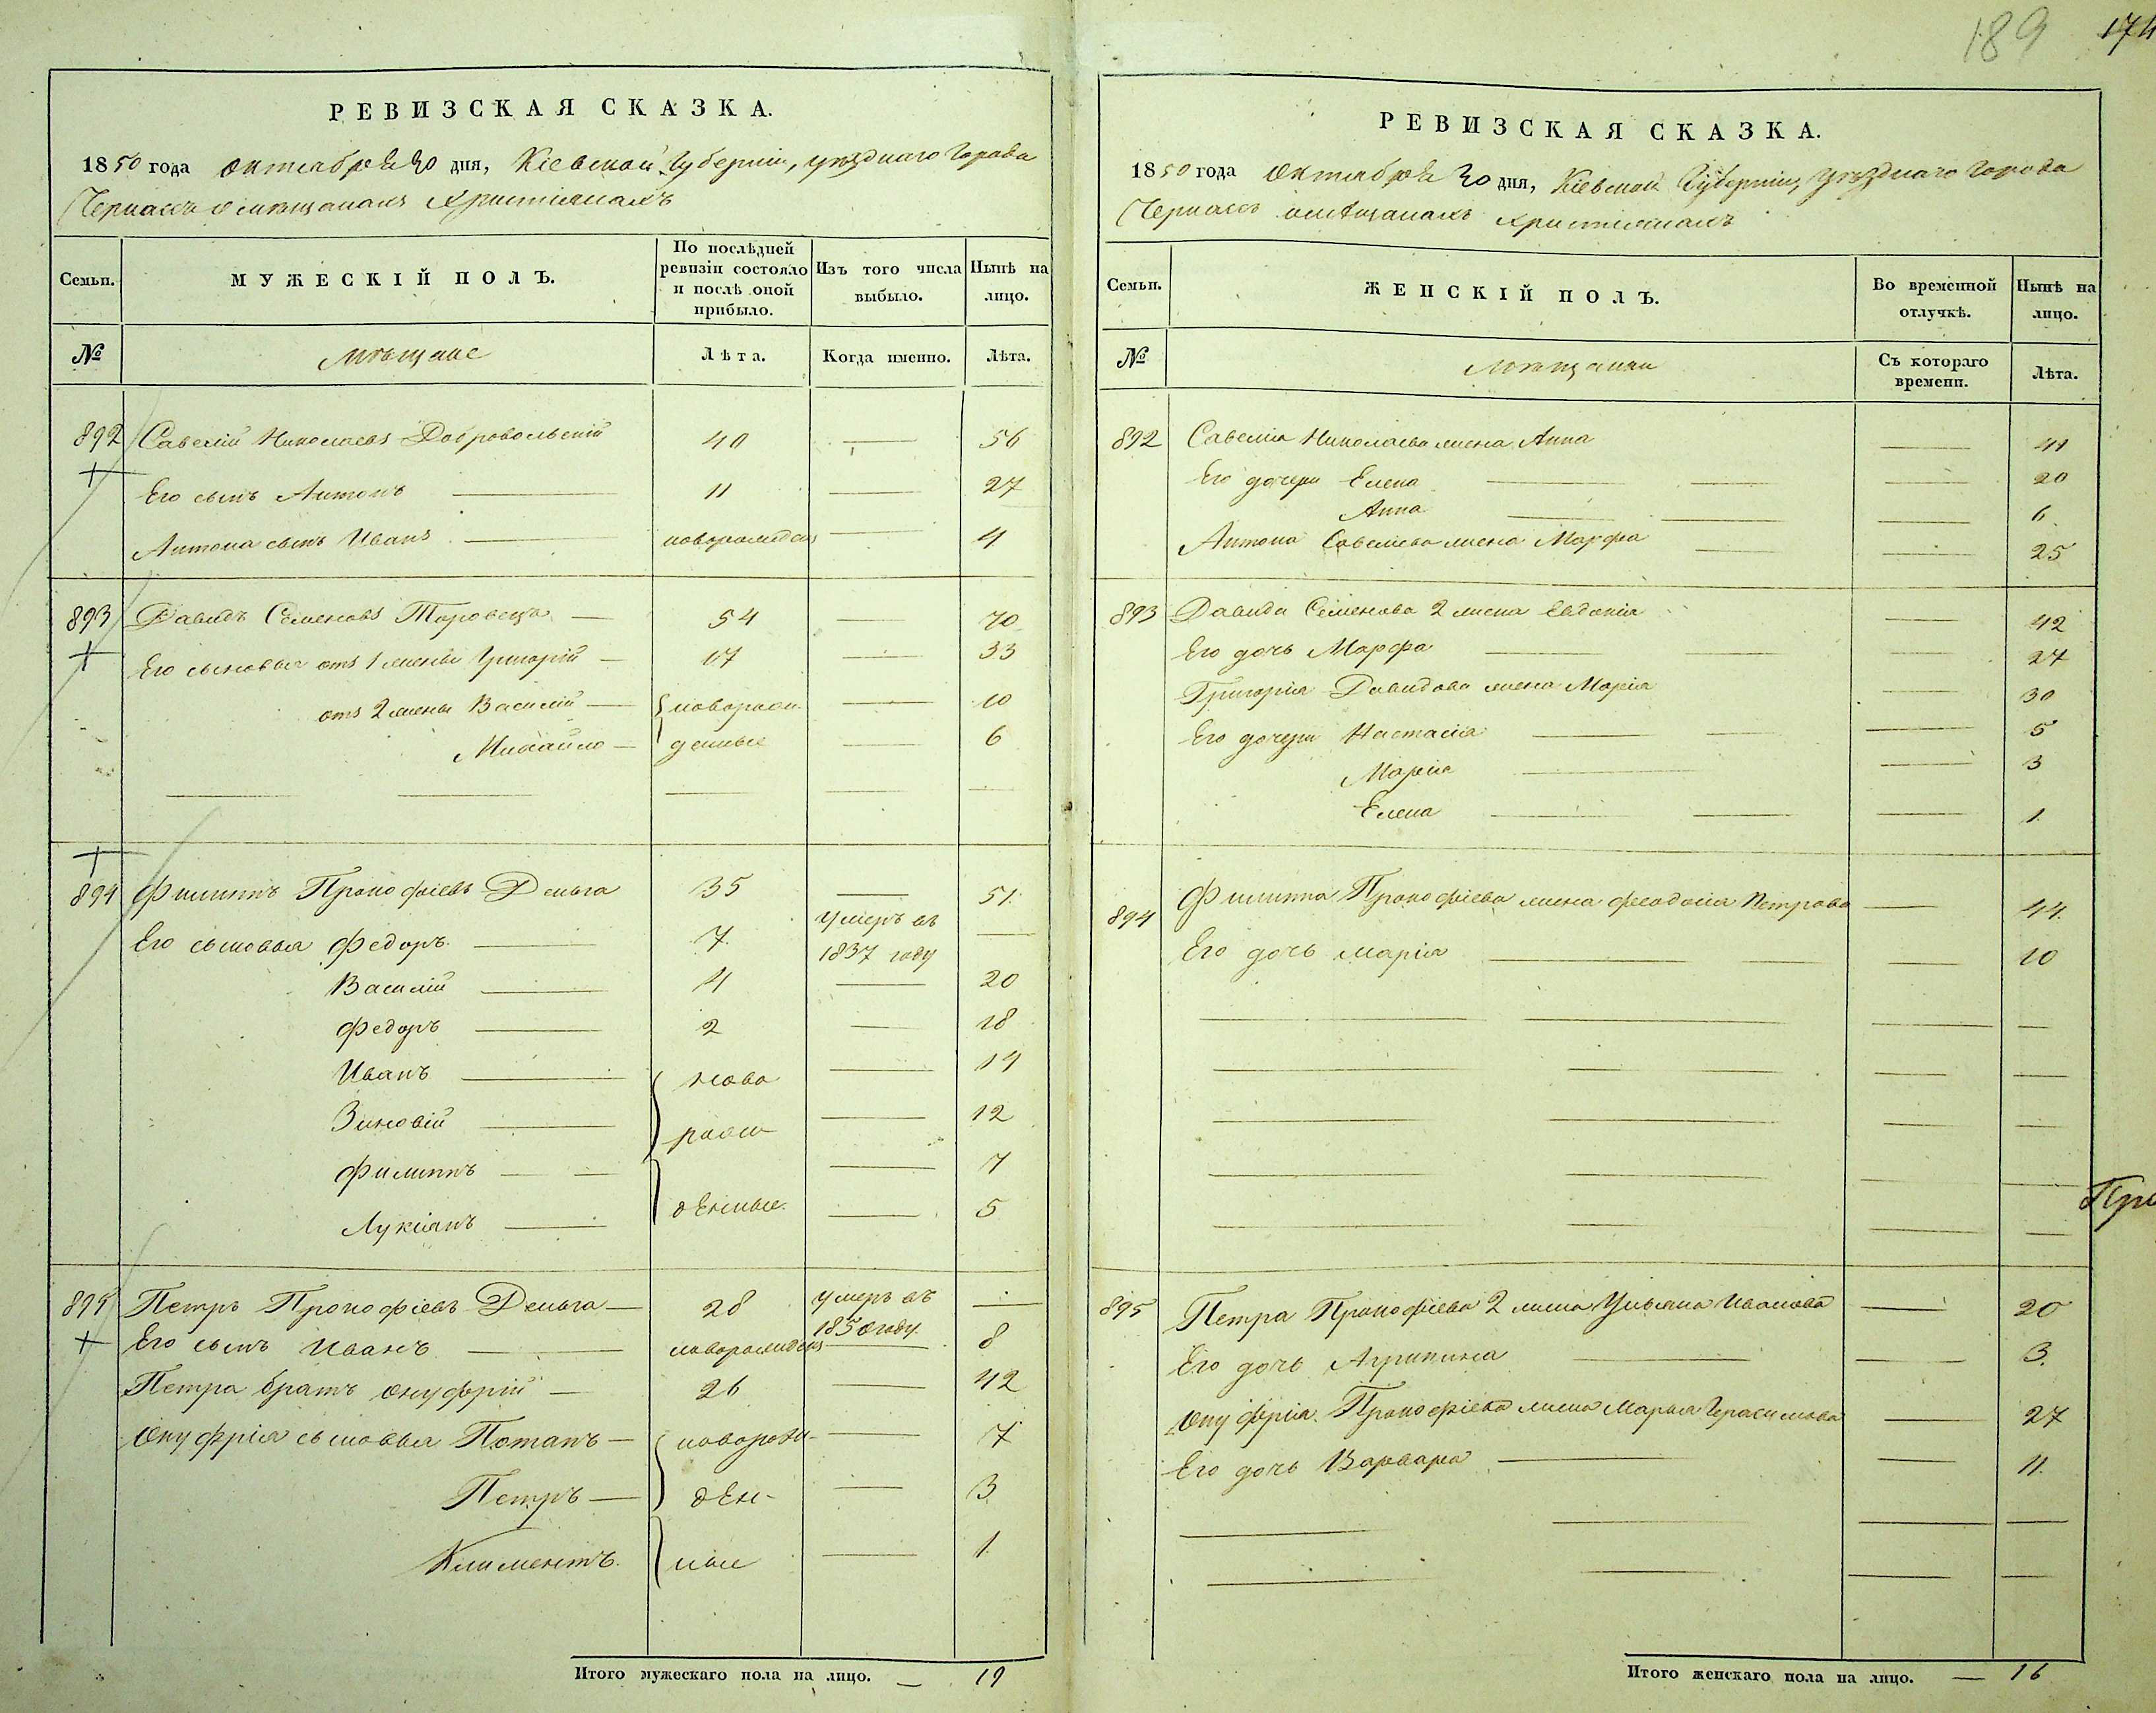 189 174
РЕВИЗСКАЯ СКАЗКА.
1850 года Октября 30 дня, Кіевской Губерніи, уѣзднаго Города
Черкасъ о мѣщанахъ христіянахъ
Семьи. МУЖЕСКІЙ ПОЛЪ. По послѣдней ревизіи состояло и послѣ оной прибыло. Изъ того числа выбыло. Нынѣ на лицо.
№ Мѣщане Лѣта. Когда именно. Лѣта.
892 Савелій Николаевъ Добровольскій 40 — 56
Его сынъ Антонъ — 11 — 27
Антона сынъ Иванъ — новорожденъ — 4
893 Давидъ Семеновъ Таровецъ — 54 — 70
Его сыновья отъ 1 жены Григорій — 17 — 33
отъ 2 жены Василій — новорож — 10
Михайло — денные — 6
894 Филиппъ Прокофіевъ Деньга 35 — 51.
Его сыновья Федоръ — 7. умеръ въ 1837 году —
Василій — 4 — 20
Федоръ — 2 — 18
Иванъ — ново — 14
Зиновій — рож — 12
Филиппъ — — 7
Лукіянъ — денные. — 5
895 Петръ Прокофіевъ Деньга — 28 умеръ въ 1850 году. —
Его сынъ Иванъ — новорожденъ — 8
Петра братъ Онуфрій — 26 — 42
Онуфрія сыновья Потапъ — новорож- — 7
Петръ — ден- — 3.
Климентъ. ные — 1.
Итого мужескаго пола на лицо. — 19
РЕВИЗСКАЯ СКАЗКА.
1850 года Октября 30 дня, Кіевской Губерніи, уѣзднаго Города
Черкасъ о мѣщанахъ христіянахъ
Семьи. ЖЕНСКІЙ ПОЛЪ. Во временной отлучкѣ. Нынѣ на лицо.
№ Мѣщанки Съ котораго времени. Лѣта.
892 Савелія Николаева жена Анна — 41
Его дочери Елена — 20
Анна — 6.
Антона Савелієва жена Марфа — 25
893 Давида Семенова 2 жена Евдокія — 42
Его дочь Марфа — 27
Григорія Давидова жена Марія — 30
Его дочери Настасія — 5
Марія — 3
Елена — 1.
894 Филиппа Прокофіева жена Феодосія Петрова — 44.
Его дочь Марія — 10
895 Петра Прокофіева 2 жена Ульяна Иванова — 20
Его дочь Агрипина — 3.
Онуфрія Прокофіева жена Марья Герасимова — 27
Его дочь Варвара — 11.
Итого женскаго пола на лицо. — 16